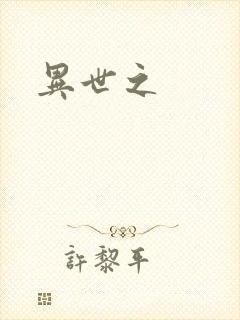 異世之
許黎平